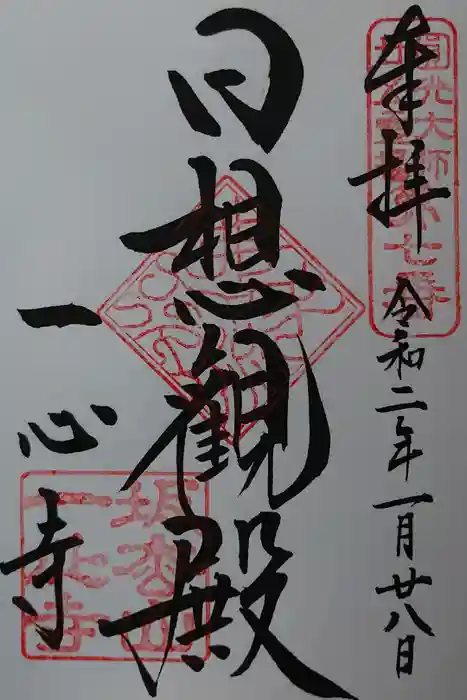 奉拝
令和二年一月廿八日
圓光大師
第七番
日想觀殿
一心寺
坂松山
一心寺